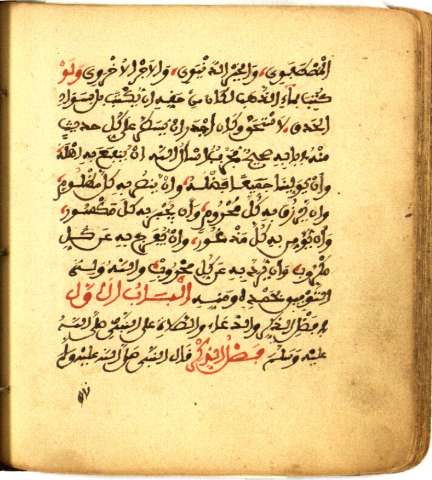 المصطفوى والخير الدنيوى والاجر الاخروى ولو
كتب بماء الذهب لكان من حقه ان يكتب بل بسواد
الحدق لاستحق وكان اجدر ان يسطر على كل حديث
منه بانه صحيح مجرب اسأل الله ان ينفع به اهله
وان يولينا جميعا فضله وان ينصر به كل مظلوم
وان يرزق به كل محروم وان يجبر به كل مكسور
وان يؤمن به كل مذعور وان يفرج به عن كل
مكروب وان يرد به عن كل محروب والله ولى
التوفيق بحمده ومنه الباب الاول
فى فضل الذكر والدعاء والصلاة على النبى صلى الله
عليه وسلم فضل الذكر قال النبى صلى الله عليه وسلم